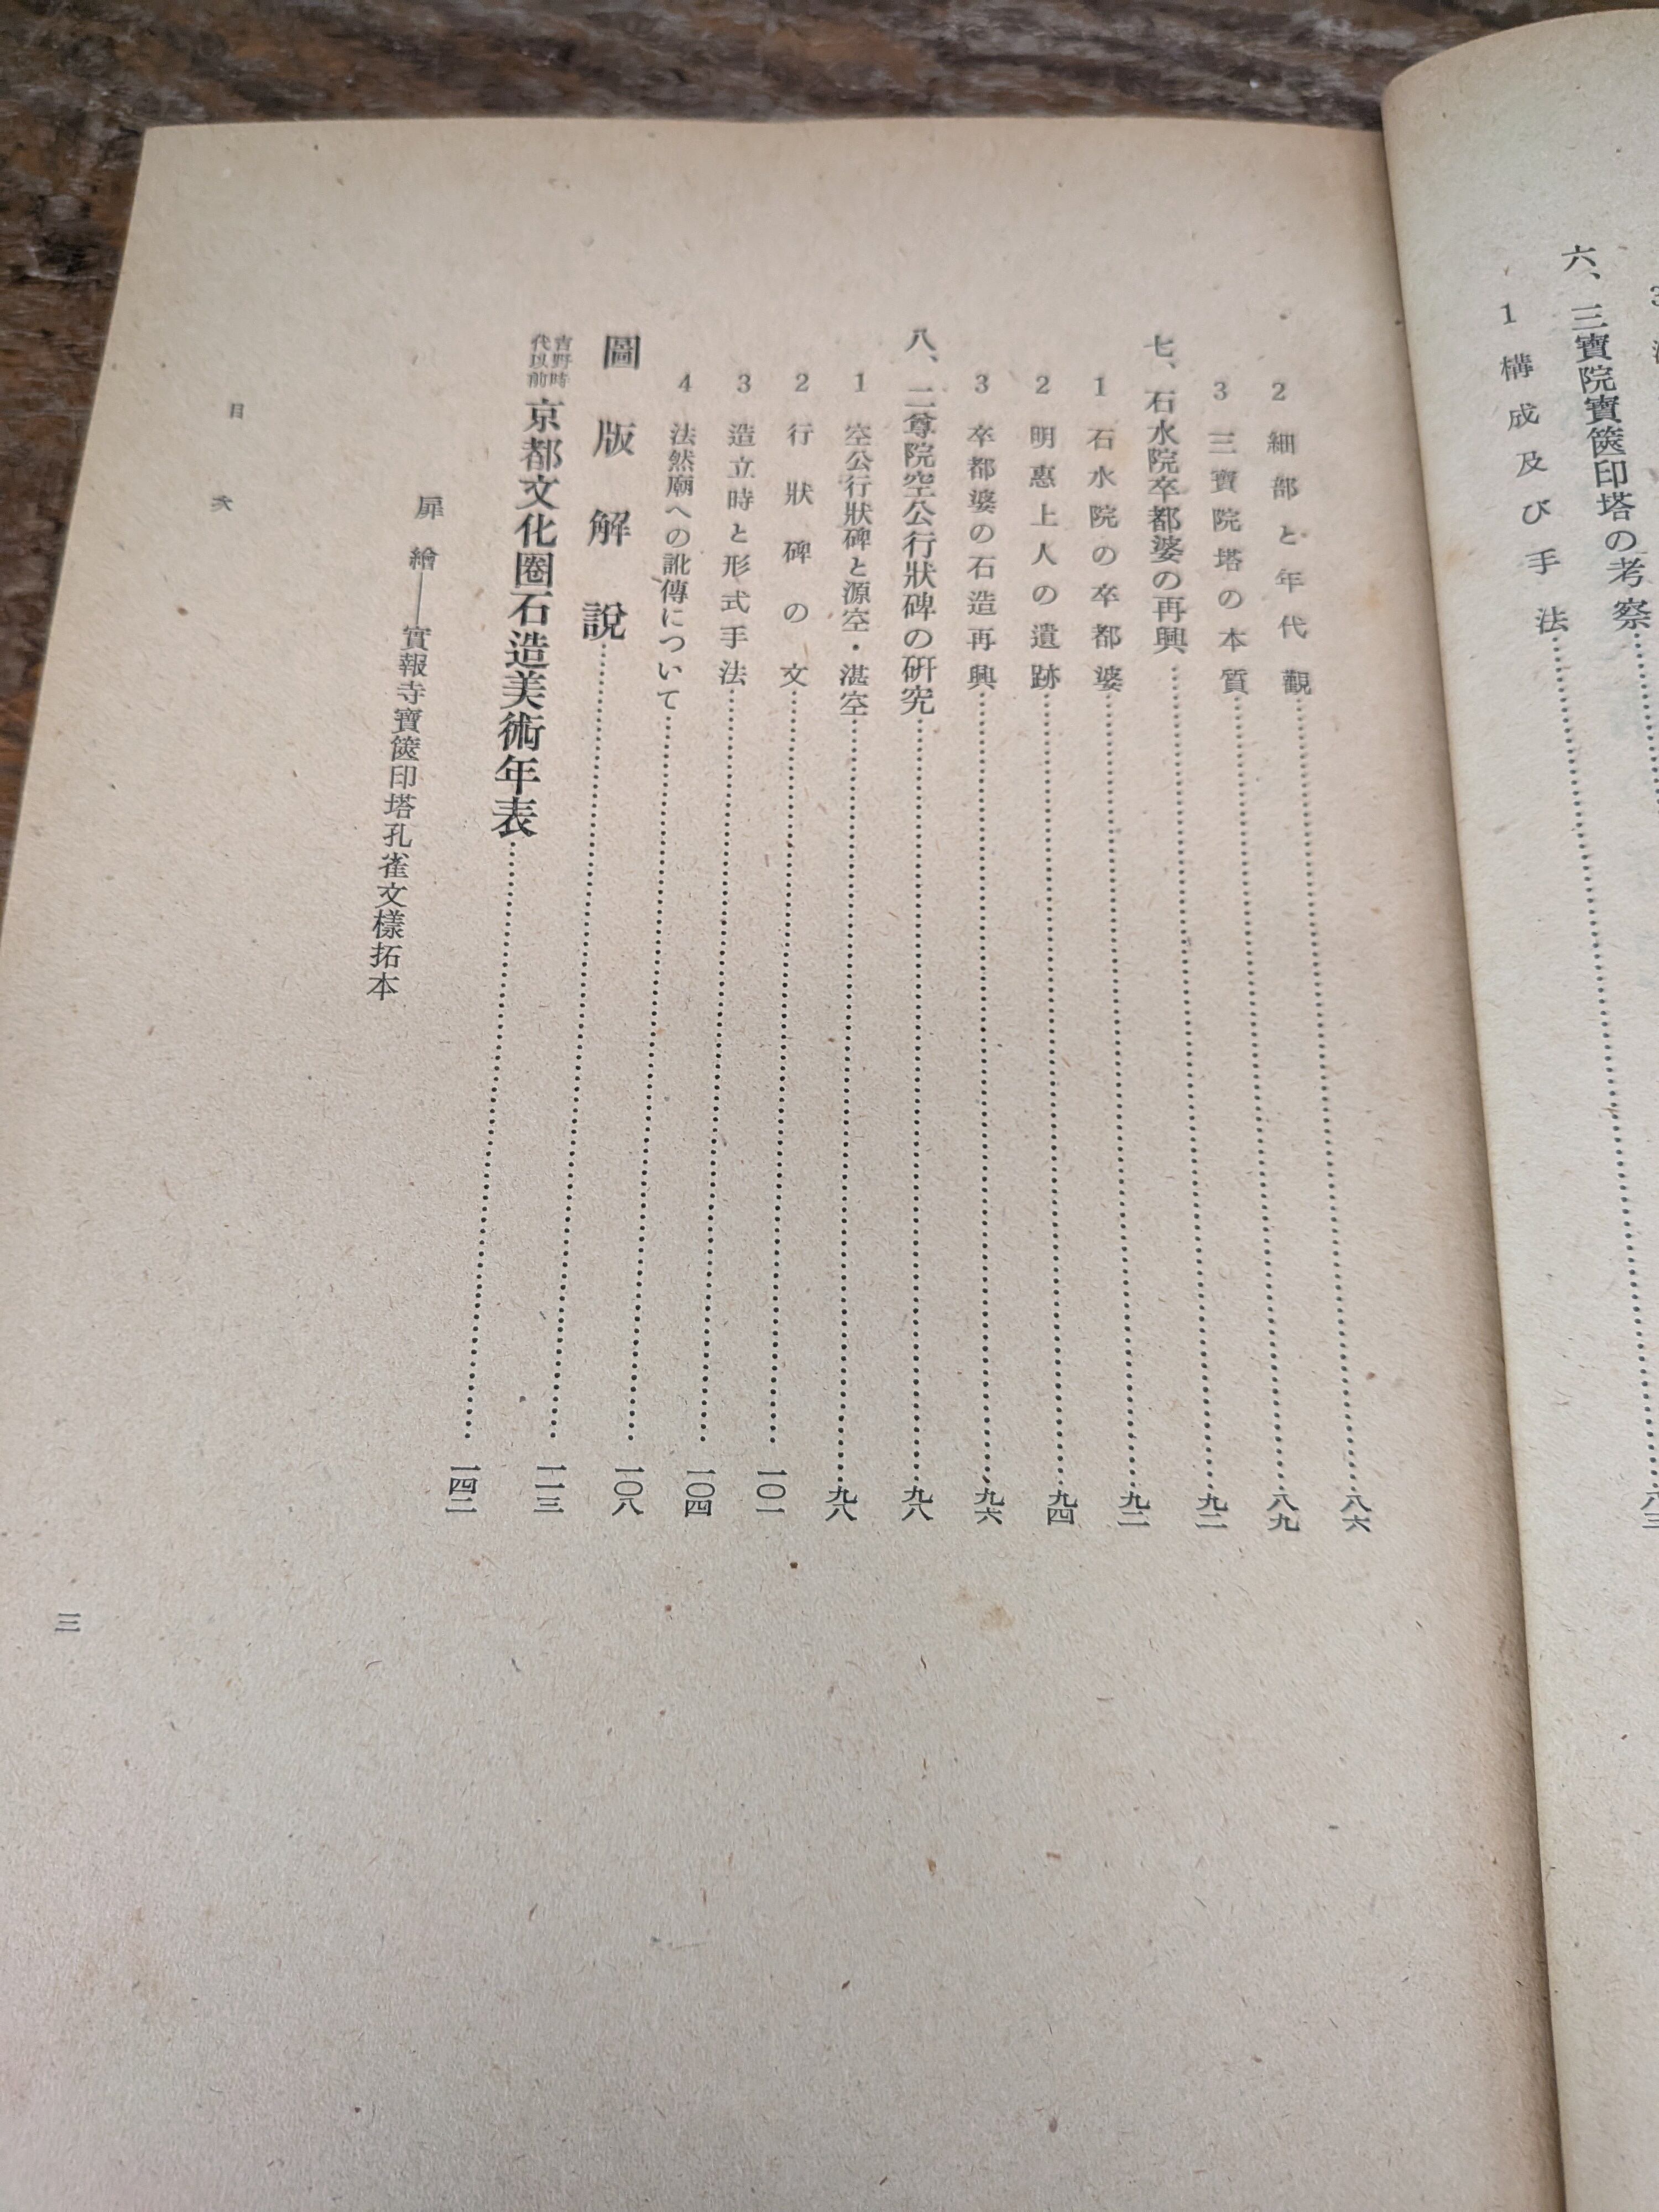 六、三寶院寶篋印塔の考察
1 構成及び手法
八三
2 細部と年代觀……八六
3 三寶院塔の本質……八九
七、石水院卒都婆の再興……九二
1 石水院の卒都婆……九二
2 明惠上人の遺跡……九四
3 卒都婆の石造再興……九六
八、二尊院空公行狀碑の研究……九八
1 空公行狀碑と源空・湛空……九八
2 行狀碑の文……一〇一
3 造立時と形式手法……一〇四
4 法然廟への訛傳について……一〇八
圖版解說……一一三
吉野時代以前 京都文化圈石造美術年表……一四二
扉繪——實報寺寶篋印塔孔雀文樣拓本
目次
三